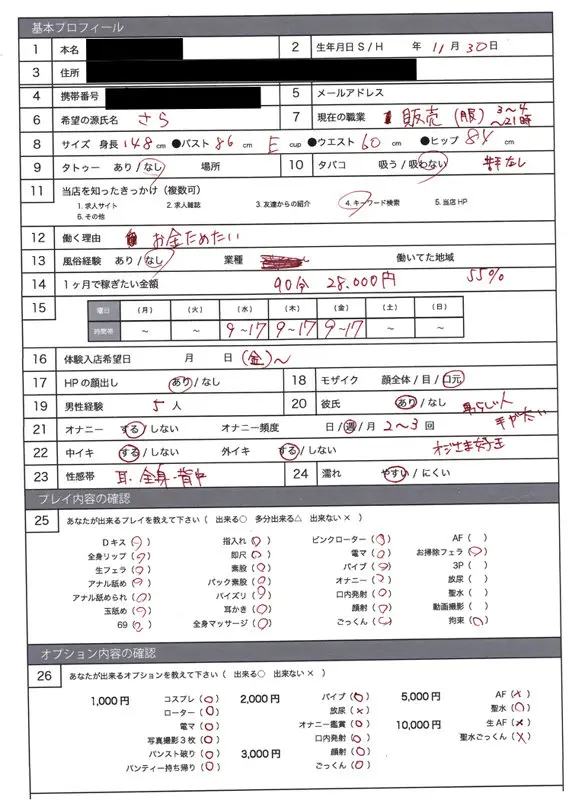 基本プロフィール
1 本名 2 生年月日 S / H 年 11 月 30 日
3 住所
4 携帯番号 5 メールアドレス
6 希望の源氏名 さら 7 現在の職業 販売 (服) 3〜4 〜21時
8 サイズ 身長 148 cm ●バスト 86 cm E cup ●ウエスト 60 cm ●ヒップ 84 cm
9 タトゥー あり / なし 場所 10 タバコ 吸う / 吸わない
11 当店を知ったきっかけ(複数可)
1. 求人サイト 2. 求人雑誌 3. 友達からの紹介 4. キーワード検索 5. 当店HP
6. その他
12 働く理由 お金ためたい
13 風俗経験 あり / なし 業種 働いてた地域
14 1ヶ月で稼ぎたい金額 90分 28.000円 55%
15 曜日 (月) (火) (水) (木) (金) (土) (日)
時間帯 〜 〜 9〜17 9〜17 9〜17 〜 〜
16 体験入店希望日 月 日 (金)〜
17 HPの顔出し あり / なし 18 モザイク 顔全体 / 目 / 口元
19 男性経験 5 人 20 彼氏 あり / なし
21 オナニー する / しない オナニー頻度 日 / 週 / 月 2〜3 回
22 中イキ する / しない 外イキ する / しない
23 性感帯 耳・全身・背中 24 濡れ やすい / にくい
プレイ内容の確認
25 あなたが出来るプレイを教えて下さい( 出来る○ 多分出来る△ 出来ない× )
Dキス (○) 指入れ (○) ピンクローター (○) AF ( )
全身リップ (○) 即尺 (○) 電マ (○) お掃除フェラ (○)
生フェラ (○) 素股 (○) バイブ (○) 3P ( )
アナル舐め (○) バック素股 (○) オナニー (○) 放尿 ( )
アナル舐められ (○) パイズリ (○) 口内発射 (○) 聖水 ( )
玉舐め (○) 耳かき (○) 顔射 (○) 動画撮影 ( )
69 (○) 全身マッサージ (○) ごっくん (○) 拘束 (○)
オプション内容の確認
26 あなたが出来るオプションを教えて下さい( 出来る○ 出来ない× )
1,000円 コスプレ (○) 2,000円 バイブ (○) 5,000円 AF (×)
ローター (○) 放尿 (×) 聖水 (○)
電マ (○) オナニー鑑賞 (○) 10,000円 生AF (×)
写真撮影3枚 (○) 口内発射 (○) 聖水ごっくん (×)
パンスト破り (○) 3,000円 顔射 (○)
パンティー持ち帰り (○) ごっくん (○)